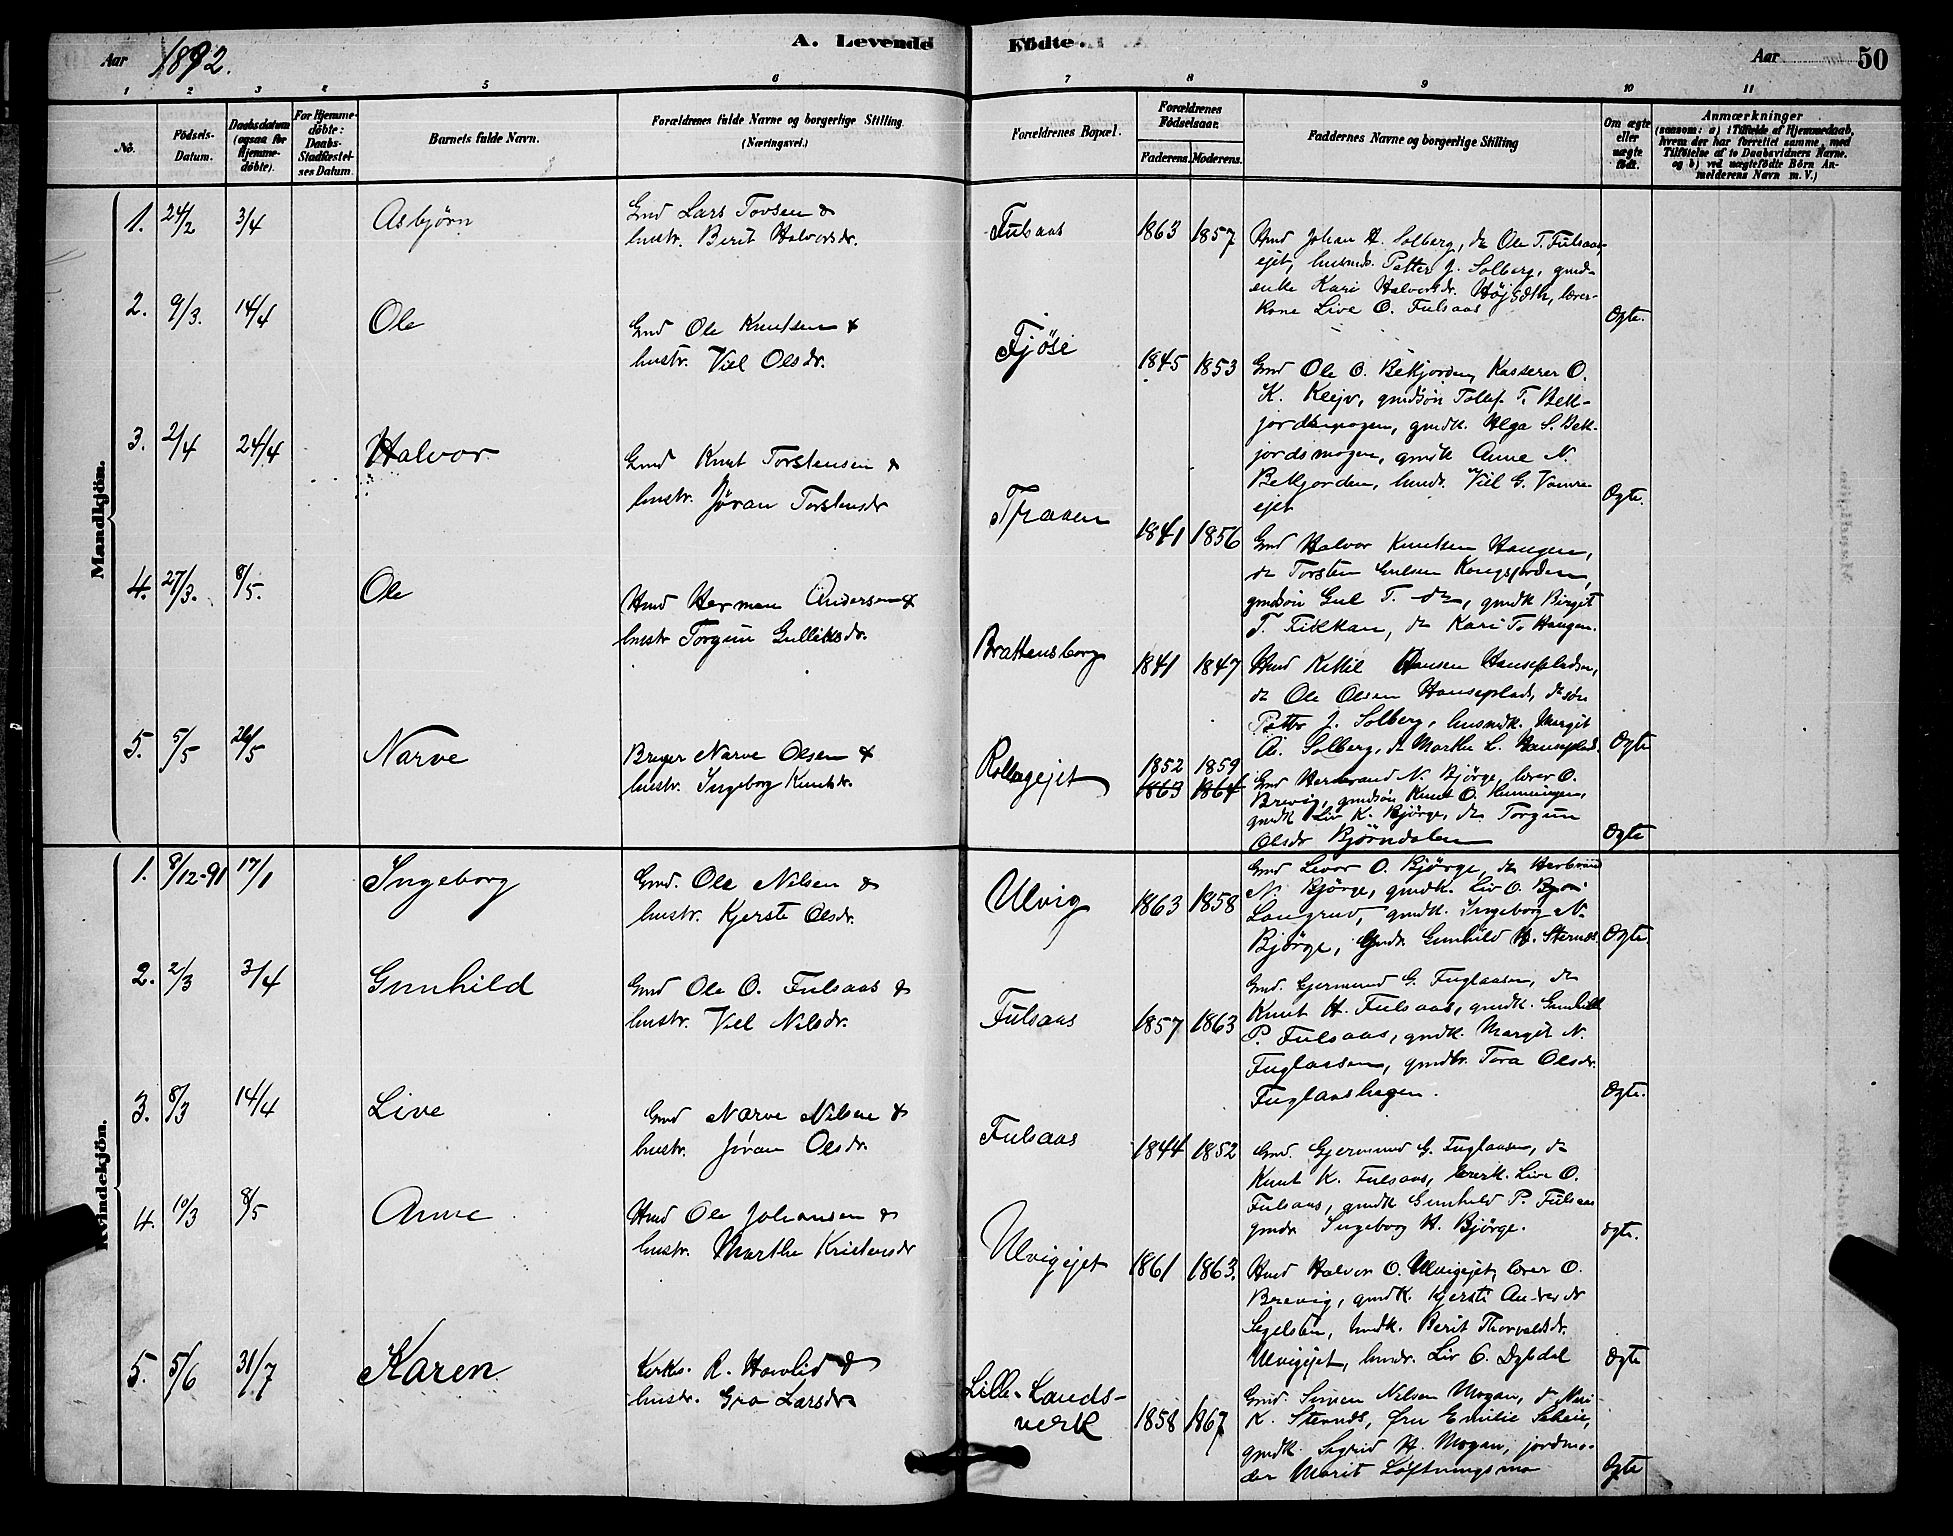 A. Levende Födte.
Aar 1892.
Aar 50
1 2 3 4 5 6 7 8 9 10 11
No.
Födsels-Datum.
Daabsdatum (ogsaa for Hjemme-döbte).
For Hjemme-döbte: Daabs-Stadfæstel-ses Datum.
Barnets fulde Navn.
Forældrenes fulde Navne og borgerlige Stilling (Næringsvei.)
Forældrenes Bopæl.
Forældrenes Födselsaar.
Faderens. Moderens.
Faddernes Navne og borgerlige Stilling
Om ægte eller uægte født.
Anmærkninger
(saasom: a) i Tilfælde af Hjemmedaab,
hvem der har forrettet samme, med
Tilföielse af to Daabsvidners Navne.
og b) ved uægtefödte Börn An-
melderens Navn m. V.)
Mandkjön.
1. 24/2 3/4 Asbjörn
Gmd Lars Tovsen &
hustr. Berit Halvorsdr.
Fulsaas 1863 1857
Gmd Johan H. Solberg, do Ole T. Fulsaas-
ejet, husmds. Petter J. Solberg, gmd-
enke Kari Halvorsdr. lærer-
kone Live O. Fulsaas
Ogte.
2. 9/3. 14/4 Ole
Gmd Ole Knutsen &
hustr. Viel Olsdr.
Fjöse 1845 1853
Gmd Ole O. Bekjorden, Kasserer O.
K. Kleiv, gmdsön Tollef T. Bek-
jordsmogen, gmdk. Helga S. Bek-
jordsmogen, gmdk Anne N.
Bekjorden, hmdr. Viel G.
ejet
Ogte.
3. 2/4 24/4 Halvor
Gmd Knut Torstensen &
hustr. Jøran Torstensdr
Traaen 1841 1856
Gmd Halvor Knutsen Haugen,
do Torsten Gulsen Kongsjorden,
gmdsön Gul T. do, gmdk Birgit
T. Fikkan, do Kari T. Haugen.
4. 27/3. 8/5. Ole
Hmd Herman Andersen &
hustr Torgun Gulliksdr.
Brattensborg 1841 1847
Hmd Kittil Hansen Hanseplads,
do Ole Olsen Hanseplads, do sön
Petter J. Solberg, husmdk. Margit
A. Solberg, do Marthe L. Hanseplads.
Ogte
5. 5/5 26/5 Narve
Bruger Narve Olsen &
hustr. Ingeborg Knutsdr.
Rollagejet 1852 1859
1863 1864
Gmd Herbrand N. Bjørge, lærer O.
Brevig, gmdsön Knut O.
gmdk Liv K. Bjørge, do Torgun
Olsdr Bjørndalen
Ogte
Kvindekjön.
1. 8/12-91 17/1 Ingeborg
Gmd. Ole Nilsen &
hustr. Kjersti Olsdr.
Ulvig 1863 1858
Gmd Levor O. Bjørge, do Herbrand
N. Bjørge, gmdk. Liv O.
Langrud, gmdk. Ingeborg N.
Bjørge, gmdr Gunhild H. Sternes
Ogte.
2. 2/3 3/4 Gunhild
Gmd Ole O. Fulsaas &
hustr. Viel Nilsdr.
Fulsaas 1857 1863
Gmd. Gjermund G. Fuglaasen, do
Knut H. Fulsaas, gmdk. Gunhild
P. Fulsaas, gmdk. Margit N.
Fuglaasen, gmdtr. Tora Olsdr.
Fuglaashagen.
Ogte.
3. 8/3 14/4 Live
Gmd Narve Nilsen &
hustr. Jøran Olsdr.
Fulsaas 1844 1852
Gmd. Gjermund G. Fuglaasen, do
Knut K. Fulsaas, lærerk. Live O.
Fulsaas, gmdk Gunhild P. Fulsaas
gmdr. Ingeborg H. Bjørge.
ogte.
4. 10/3 8/5 Anne
Hmd Ole Johansen &
hustr. Marthe Kristensdr
Ulvigejet 1861 1863.
Hmd Halvor O. Ulvigejet, lærer O.
Brevig, gmdk. Kjersti Andersdr
hmdk. Berit Thorvaldsdr.
Ulvigejet, hmdr. Liv G. Dybdal
Ogte
5. 5/6 31/7 Karen
Kirkes. R. Havlid &
hustr. Gro Larsdr
Lille-Lands-
verk 1858 1867
Gmd. Simen Nilsen Mogan, do
K. Sternes, fru Emilie Scheie,
gmdk. Sigrid H. Mogan, jordmo-
der Marit Løftningsmo
Ogte